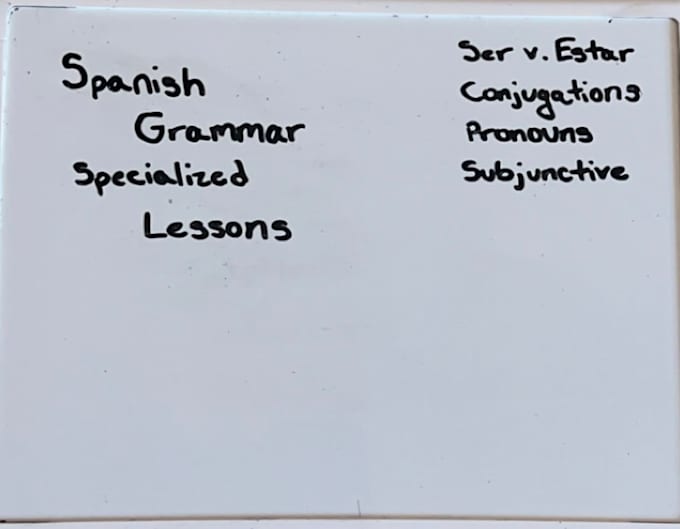 Spanish
Grammar
Specialized
Lessons
Ser v. Estar
Conjugations
Pronouns
Subjunctive